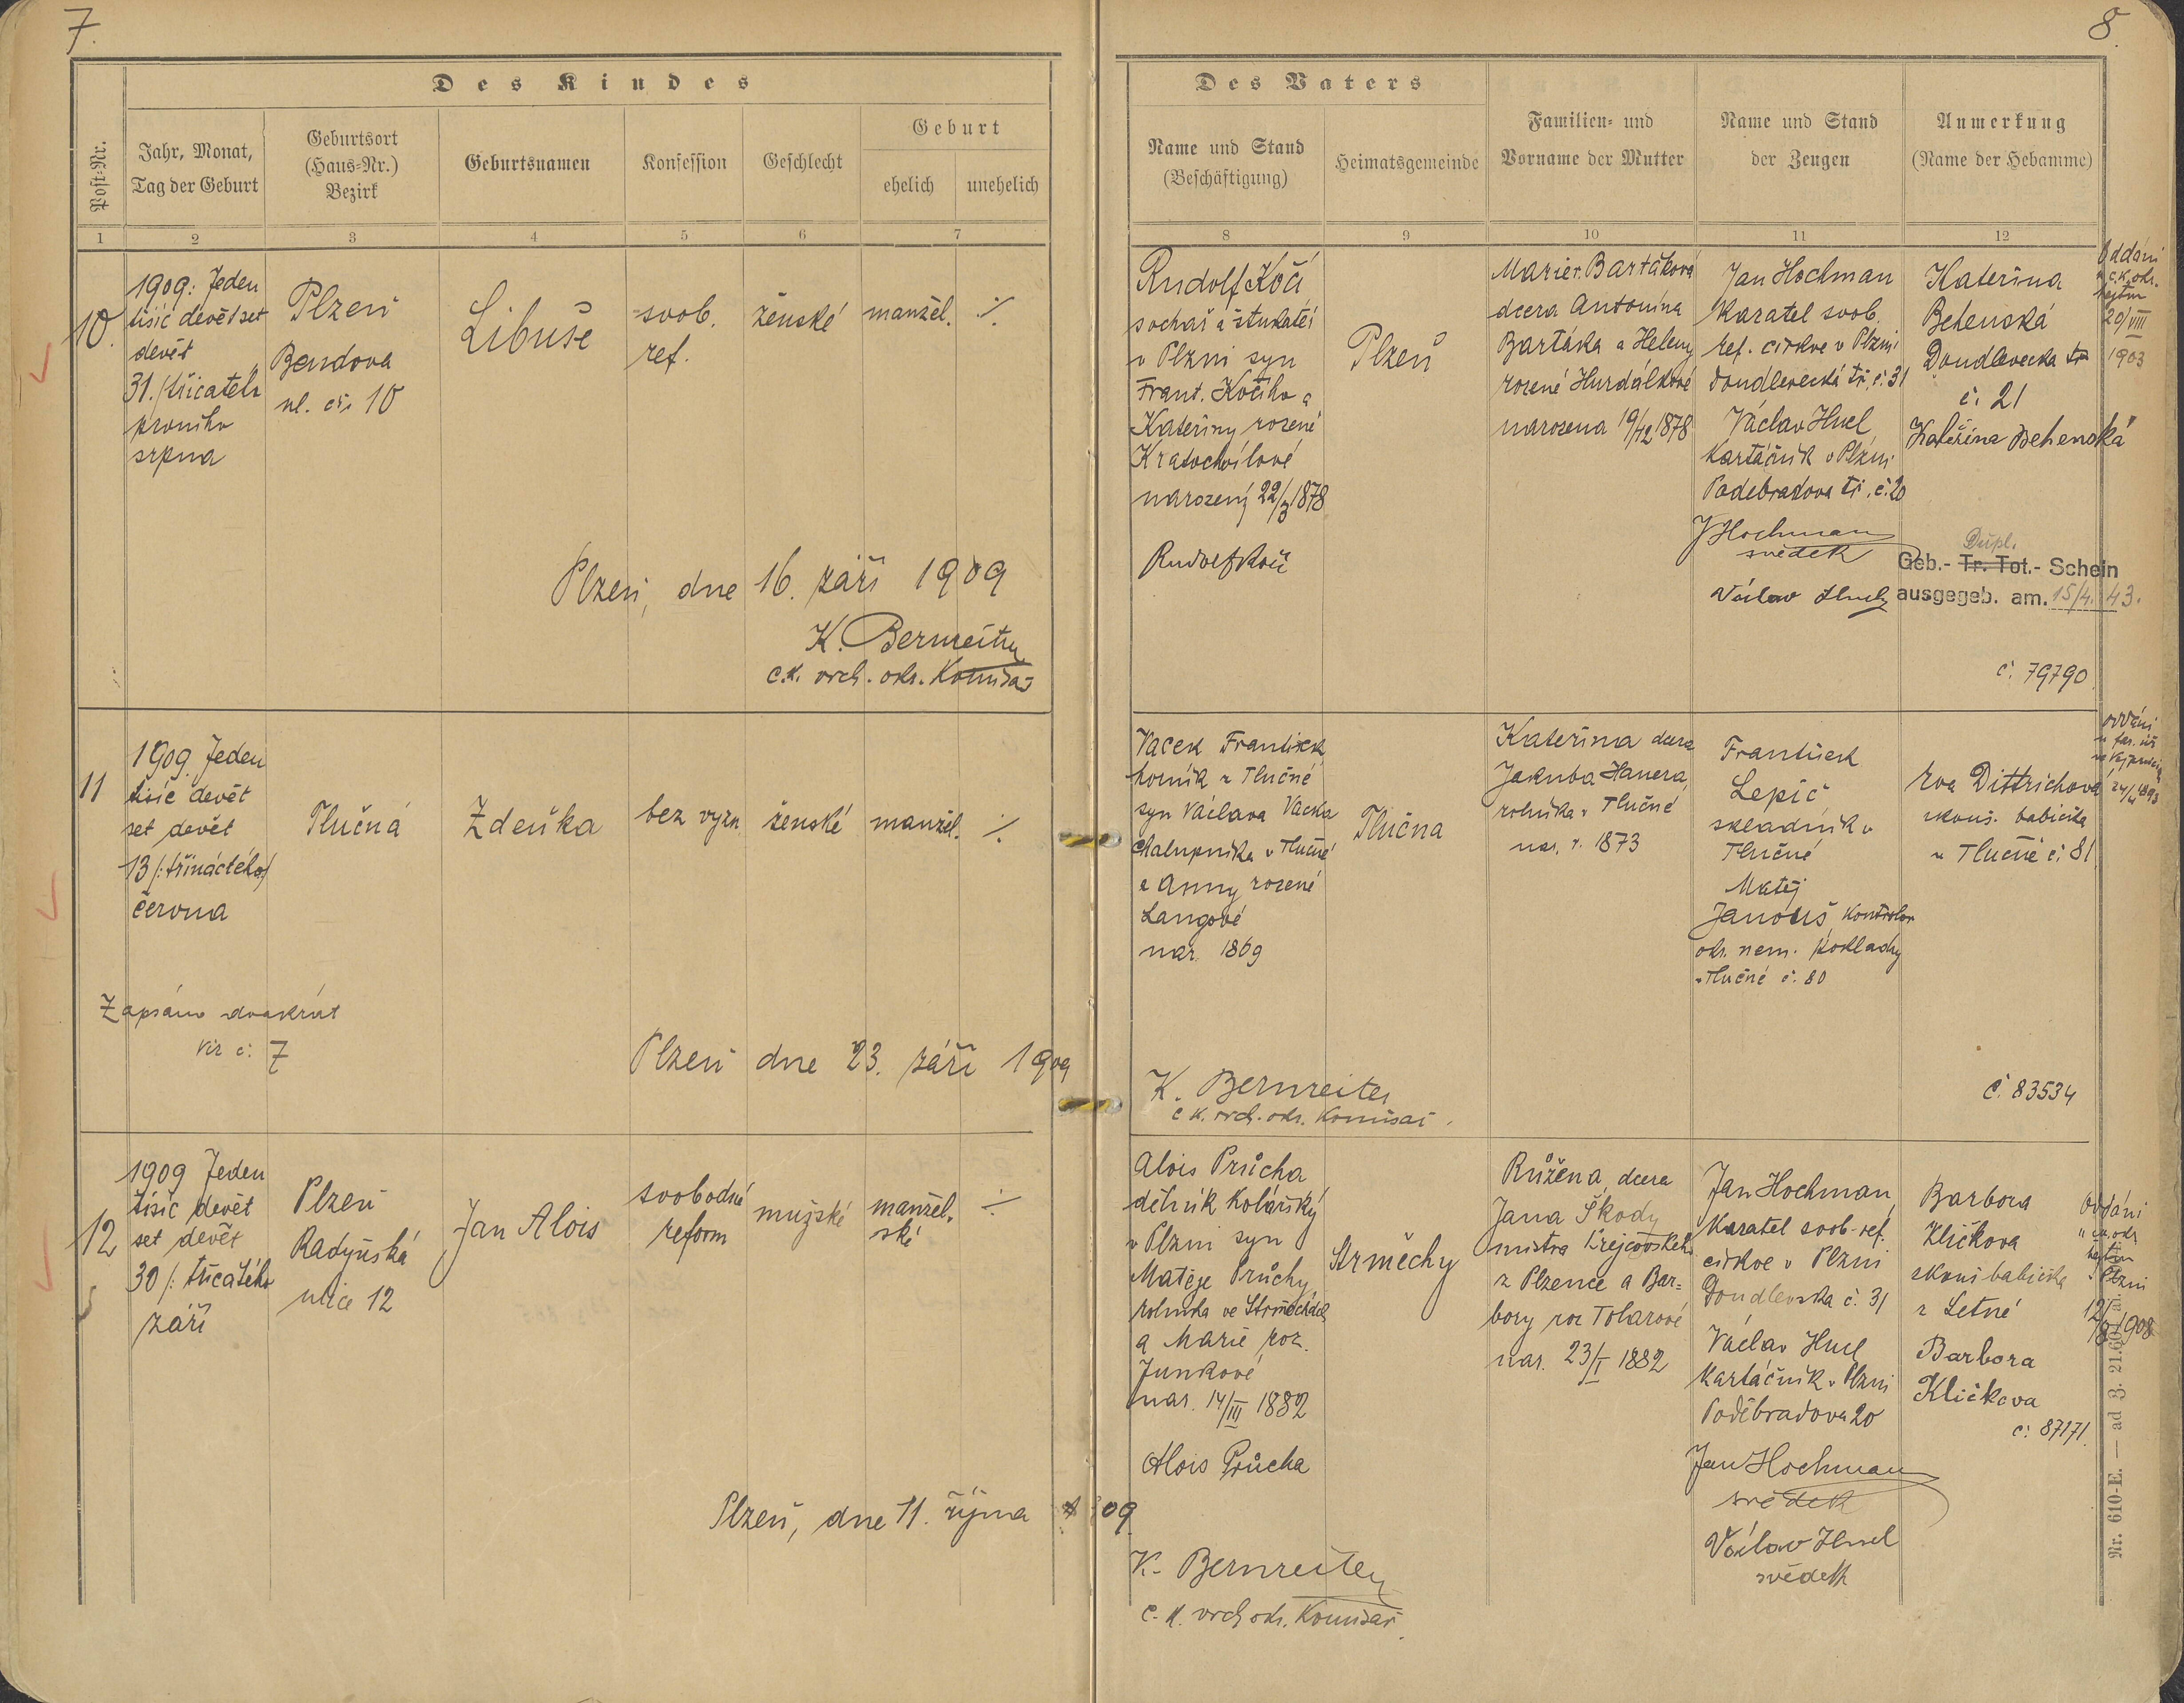 7.
Des Kindes
Post-Nr.
Jahr, Monat,
Tag der Geburt
Geburtsort
(Haus-Nr.)
Bezirk
Geburtsnamen
Konfession
Geschlecht
Geburt
ehelich
unehelich
1
2
3
4
5
6
7
10.
1909: Jeden
tisíc devět set
devět
31. /třicátého
prvního
srpna
Plzeň
Bendova
ul. čís 10
Libuše
svob.
ref.
ženské
manžel.
·/.
Plzeň, dne 16. září 1909
K. Bernreiter
c.k. vrch. okr. Komisař
11
1909 Jeden
tisíc devět
set devět
13 /: třináctého/
června
Tlučná
Zdeňka
bez vyzn.
ženské
manžel.
·/.
Zapsáno dvakrát
viz č. 7
Plzeň dne 23. září 1909
12
1909 Jeden
tisíc devět
set devět
30 /: třicátého
září
Plzeň
Radyňská
ulice 12
Jan Alois
svobodné
reform
mužské
manžel.
ské
·/.
Plzeň, dne 11. října 09
8.
Des Vaters
Name und Stand
(Beschäftigung)
Heimatsgemeinde
Familien- und
Vorname der Mutter
Name und Stand
der Zeugen
Anmerkung
(Name der Hebamme)
8
9
10
11
12
Rudolf Kočí
sochař a štukatér
v Plzni syn
Frant. Kočího a
Kateřiny rozené
Kratochvílové
narozený 22/3 1878
Rudolf Kočí
Plzeň
Marie r. Bartáková
dcera Antonína
Bartáka a Heleny
rozené Hurdálkové
narozena 19/12 1878
Jan Hochman
Kazatel svob.
ref. církve v Plzni
Doudlevecká tř. č. 31
Václav Husl
Kartáčník v Plzni
Poděbradova tř. č. 20
J Hochman
svědek
Václav Husl
Kateřina
Behenská
Doudlevecka tř
č. 21
Kateřina Behenská
Oddáni
u c.k. okr.
hejtm
20/VIII
1903
Dupl.
Geb.- Tr. Tot.- Schein
ausgegeb. am. 15/4. 43.
č. 79790
Vacek František
horník v Tlučné
syn Václava Vacka
chalupníka v Tlučné
a Anny rozené
Langové
nar. 1869
Tlučna
Kateřina dcera
Jakuba Hanera,
rolníka v Tlučné
nar. r. 1873
František
Lepič
skladník v
Tlučné
Matěj
Janouš, kontrolor
okr. nem. pokladny
v Tlučné č. 80
Eva Dittrichova
zkouš. babička
v Tlučné č. 81
oddáni
č. 83534
K. Bernreiter
c k. vrch. okr. Komisař.
Alois Průcha
dělník kolářský
v Plzni syn
Matěje Průchy
rolníka ve Strměchách
a Marie roz.
Junkové
nar. 14/III 1882
Alois Průcha
Strměchy
Růžena, dcera
Jana Škody
mistra krejčovského
z Plzence a Bar=
bory roz Tolarové
nar. 23/I 1882
Jan Hochman,
Kazatel svob-ref.
církve v Plzni
Doudlevska č. 31
Václav Husl
Kartáčník v Plzni
Poděbradova 20
Jan Hochman
svědek
Václav Husl
svědek
Barbora
Kličkova
zkouš babička
z Letné
Barbora
Kličkova
č. 87171.
Oddáni
v Plzni
12/9 1908
K. Bernreiter
c. k. vrch okr. Komisař.
Nr. 610-E. — ad Z. 21.60